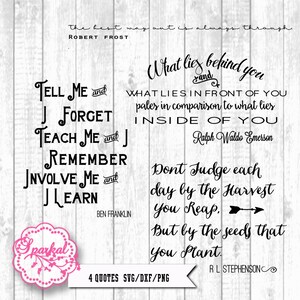 the best way out is always through
Robert frost
What lies behind you
and
WHAT LIES IN FRONT OF YOU
pales in comparison to what lies
INSIDE OF YOU
Ralph Waldo Emerson
Tell Me and
I Forget
Teach Me and I
Remember
Involve Me and
I Learn
BEN FRANKLIN
Don't Judge each
day by the Harvest
You Reap,
But by the seeds that
You Plant.
R L STEPHENSON
Sparkal
4 QUOTES SVG/DXF/PNG